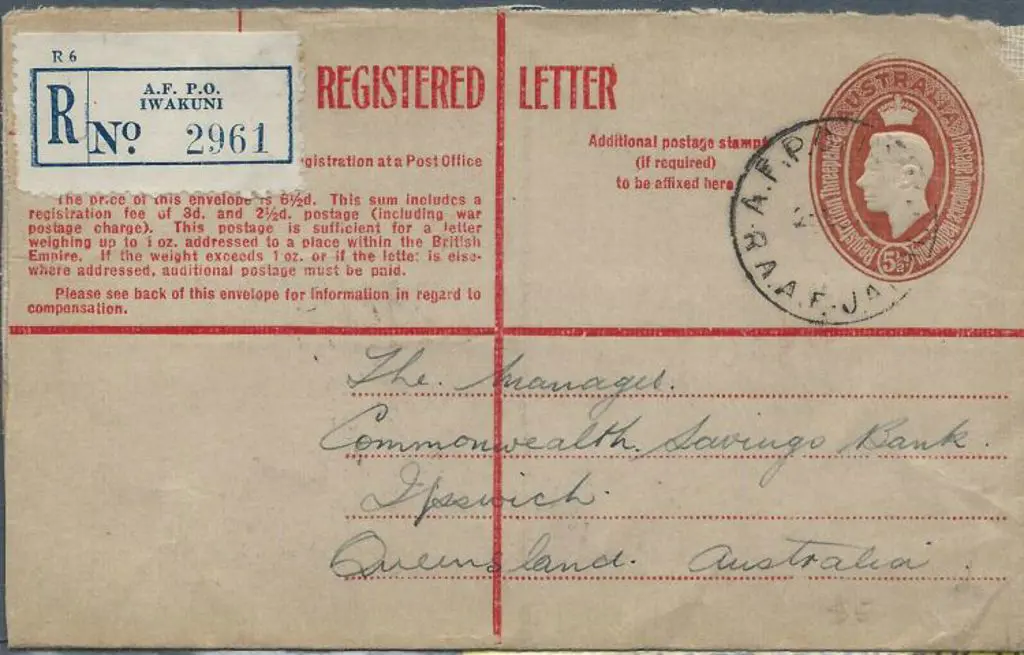 R 6
A.F. P.O.
IWAKUNI
R No. 2961
REGISTERED LETTER
gistration at a Post Office
The price of this envelope is 6½d. This sum includes a
registration fee of 3d. and 2½d. postage (including war
postage charge). This postage is sufficient for a letter
weighing up to 1 oz. addressed to a place within the British
Empire. If the weight exceeds 1 oz. or if the letter is else-
where addressed, additional postage must be paid.
Please see back of this envelope for information in regard to
compensation.
Additional postage stamp
(if required)
to be affixed here
AUSTRALIA
Registration threepence
Postage Twopence Halfpenny
5½d
A.F.P.
R.A.A.F. JA
The Manager.
Commonwealth Savings Bank.
Ipswich.
Queensland. Australia